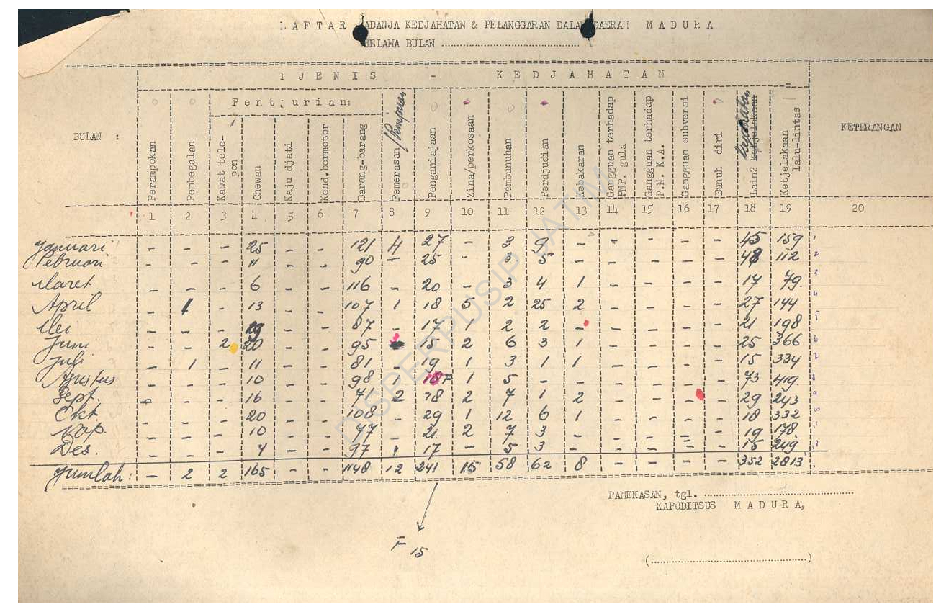 DAFTAR ADANJA KEDJAHATAN & PELANGGARAN DALAM DAERAH MADURA
SELAMA BULAN ................................
DJENIS - KEDJAHATAN
Pentjurian:
BULAN :
Perampokan
Pembegalan
Kawat tele-pon
Hewan
Kaju djati
Kend.bermotor
Barang-barang
Pemerasan/
Penganiajaan
Zina/perkosaan
Pembunuhan
Perdjudian
Kebakaran
Gangguan terhadap PNP. gula
Gangguan terhadap P.N. K.A.
Gangguan subversi
Bunuh diri
Lain2
Ketjelakaan lalu-lintas
KETERANGAN
1 2 3 4 5 6 7 8 9 10 11 12 13 14 15 16 17 18 19 20
Januari - - - 25 - - 121 4 27 - 3 9 - - - - - 45 159
Februari - - - 11 - - 90 - 25 - 3 5 - - - - - 48 112
Maret - - - 6 - - 116 - 20 - 3 4 1 - - - - 17 79
April - 1 - 13 - - 107 1 18 5 2 25 2 - - - - 27 144
Mei - - - - - 87 - 17 1 2 2 - - - - - 21 198
Juni - - 2 20 - - 95 15 2 6 3 1 - - - - 25 366
Juli - 1 - 11 - - 81 - 19 1 3 1 1 - - - - 15 334
Agustus - - - 10 - - 98 - 1 5 - - - - - - 73 419
Sept. - - - 16 - - 71 2 28 2 7 1 2 - - - - 29 243
Okt - - - 20 - - 108 - 29 1 12 6 1 - - - - 18 332
Nop - - - 10 - - 77 - 21 2 7 3 - - - - - 19 178
Des - - - 4 - - 97 1 17 - 5 3 - - - - - 15 249
Jumlah: - 2 2 165 - - 1148 12 241 15 58 62 8 - - - - 352 2813
PAMEKASAN, tgl. ................................
KAPODITSUS MADURA,
F 15
(................................)